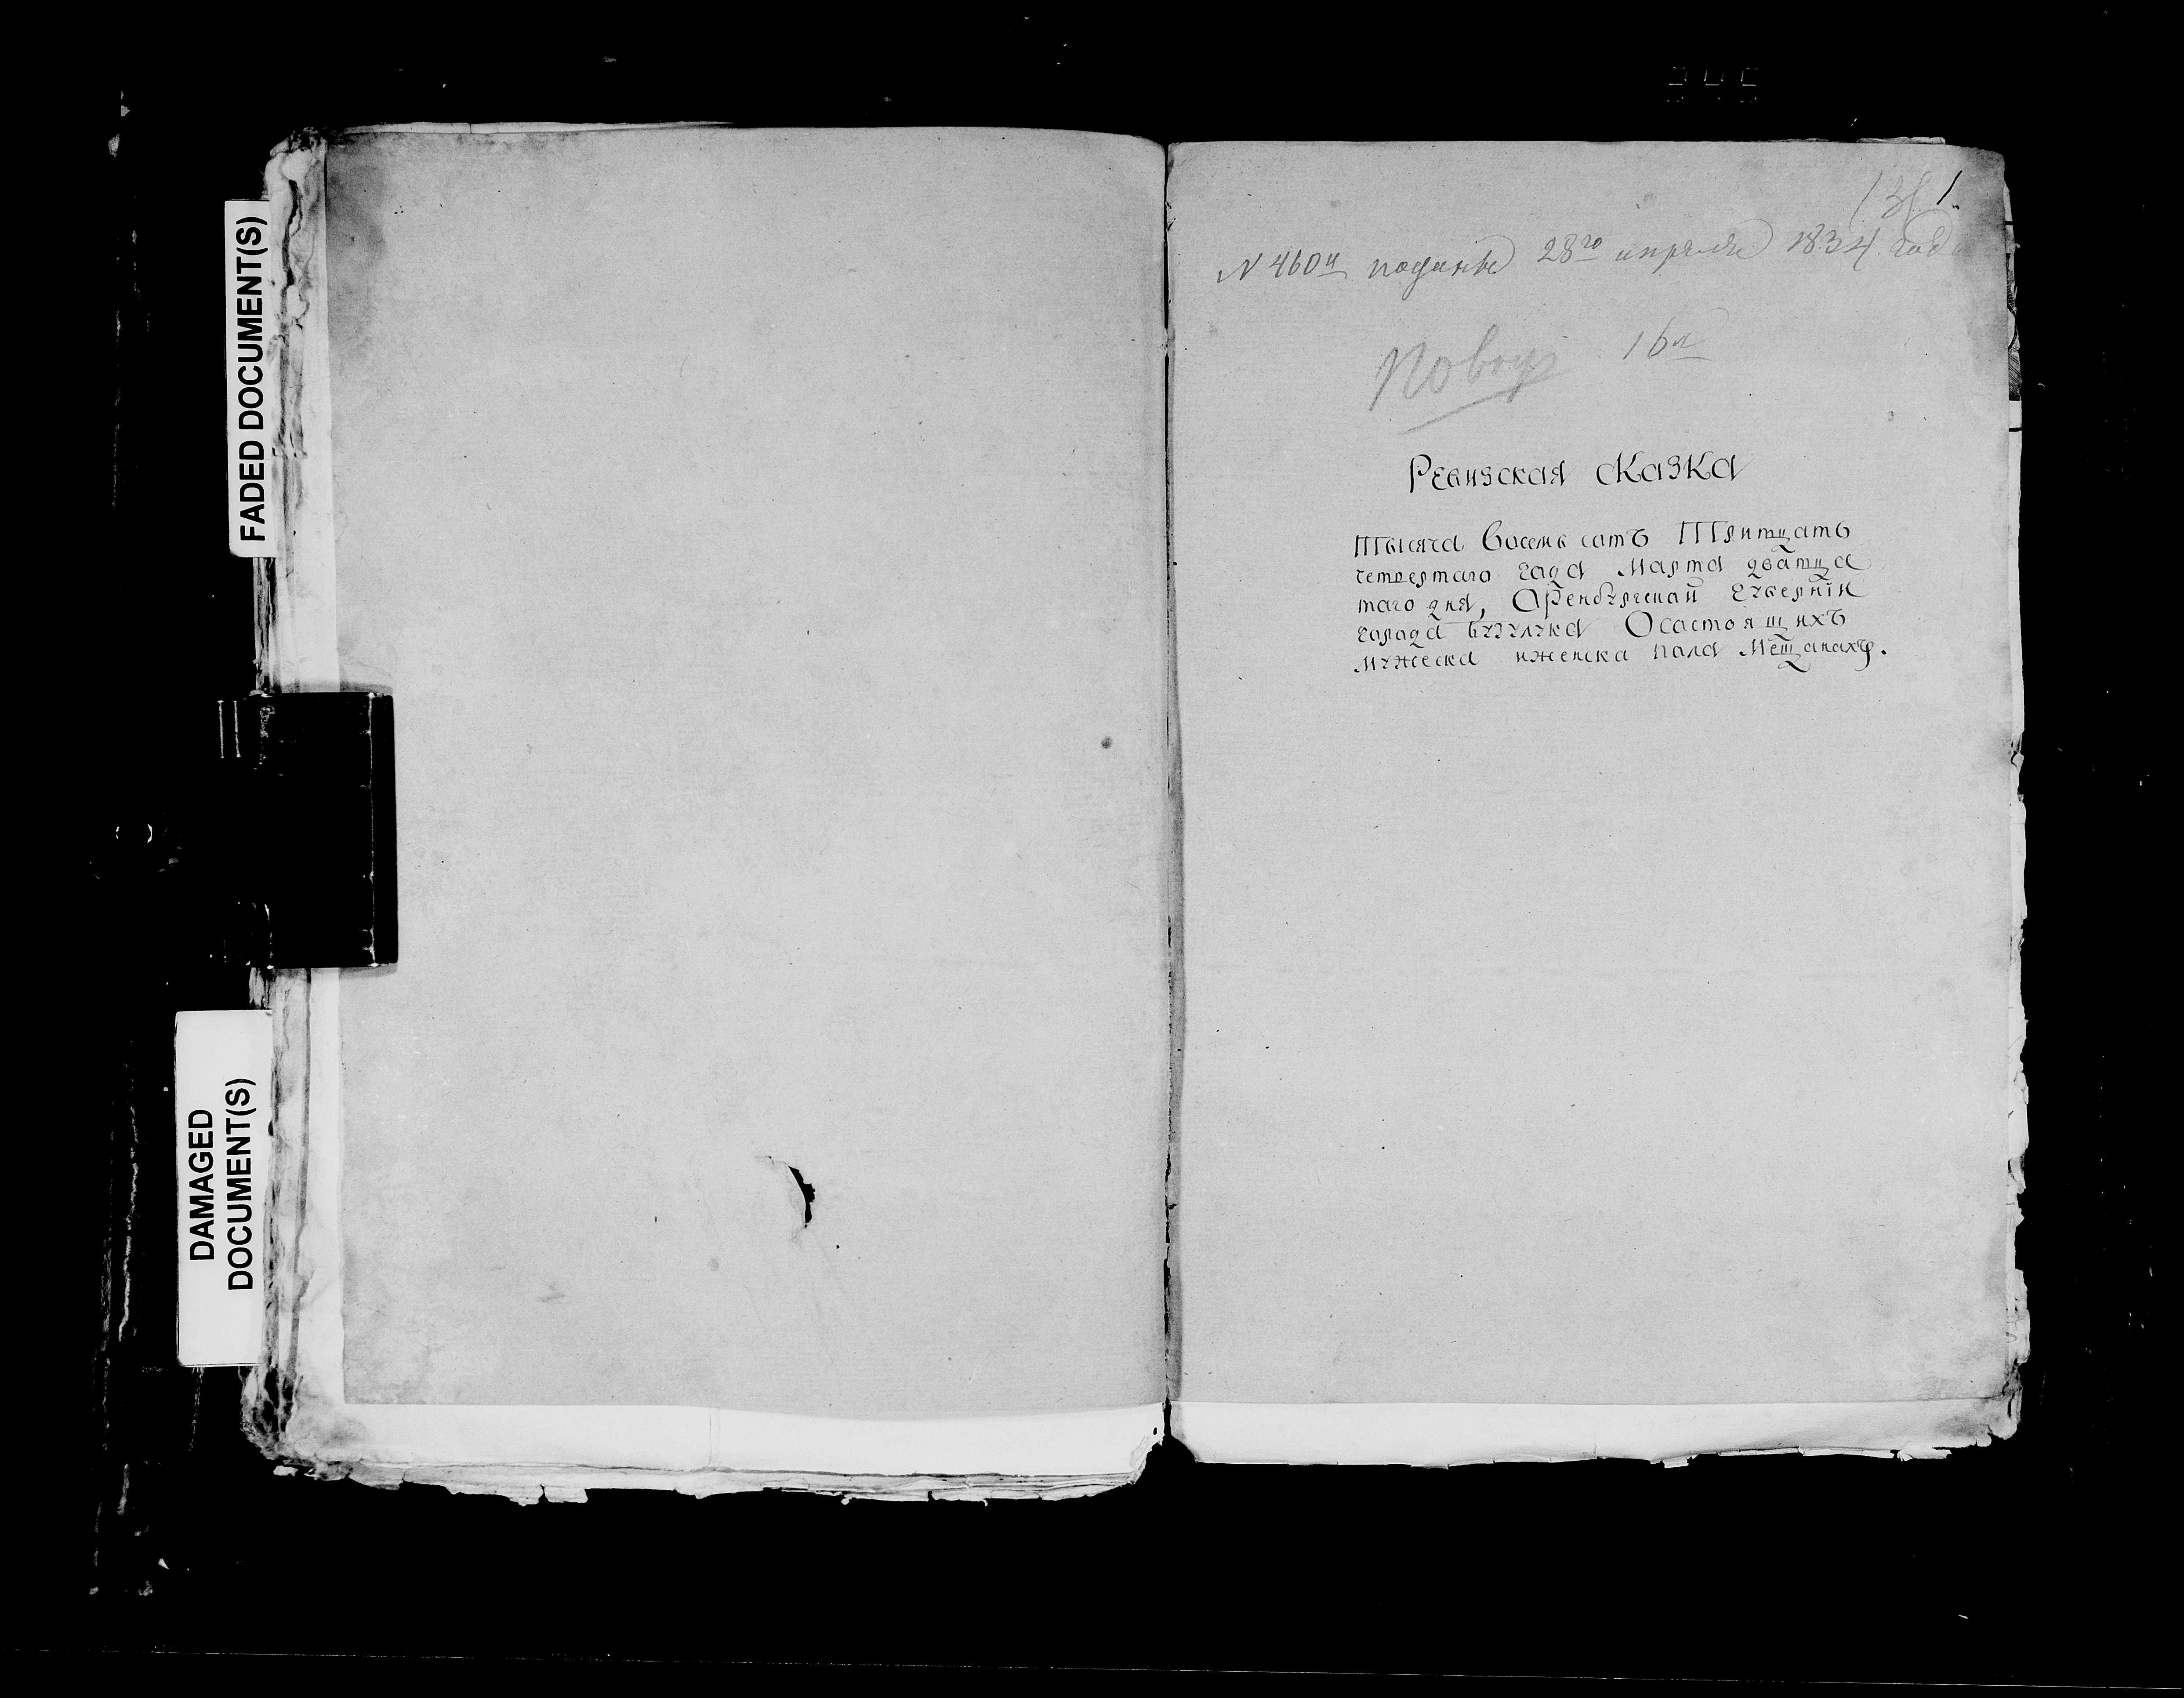 FADED DOCUMENT(S)
DAMAGED
DOCUMENT(S)
1
N 460й поданъ 28го апреля 1834 года
16
Ревизская сказка
Тысяча Восемь сатъ Тритцать
четвертаго гада Марта дватца
таго дня, Оренбургскай Губернiи
гарада Бузулука Осастоящихъ
мужеска иженска пала Мещанахъ.